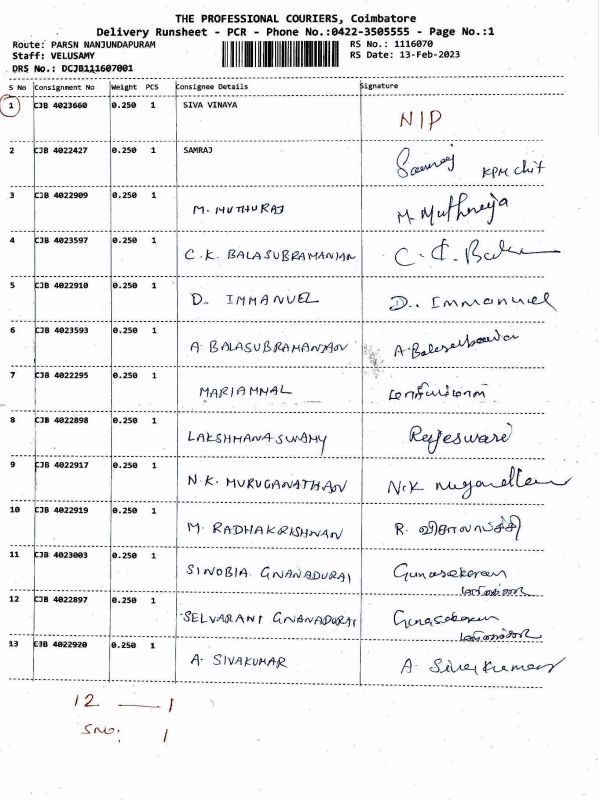 THE PROFESSIONAL COURIERS, Coimbatore
Delivery Runsheet - PCR - Phone No.:0422-3505555 - Page No.:1
Route: PARSN NANJUNDAPURAM RS No.: 1116070
Staff: VELUSAMY RS Date: 13-Feb-2023
DRS No.: DCJB111607001
S No Consignment No Weight PCS Consignee Details Signature
1 CJB 4023660 0.250 1 SIVA VINAYA NIP
2 CJB 4022427 0.250 1 SAMRAJ Samraj KPM chit
3 CJB 4022909 0.250 1 M. MUTHURAJ M. Muthuraja
4 CJB 4023597 0.250 1 C.K. BALASUBRAMANIAN C. K. Bala
5 CJB 4022910 0.250 1 D. IMMANUEL D. Immanuel
6 CJB 4023593 0.250 1 A BALASUBRAMANIAN A.
7 CJB 4022295 0.250 1 MARIAMMAL மாரியம்மாள்
8 CJB 4022898 0.250 1 LAKSHMANASWAMY Rajeswari
9 CJB 4022917 0.250 1 N.K. MURUGANATHAN N.K
10 CJB 4022919 0.250 1 M. RADHAKRISHNAN R. விசாலாட்சி
11 CJB 4023003 0.250 1 SINOBIA GNANADURAI Gunasekaran
12 CJB 4022897 0.250 1 SELVARANI GNANADURAI Gunasekaran
13 CJB 4022920 0.250 1 A. SIVAKUMAR A. Sivakumar
12 — 1
SNO: 1